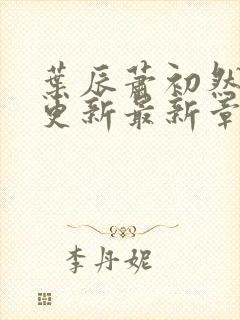 葉辰蕭初然
更新最新章
李丹妮